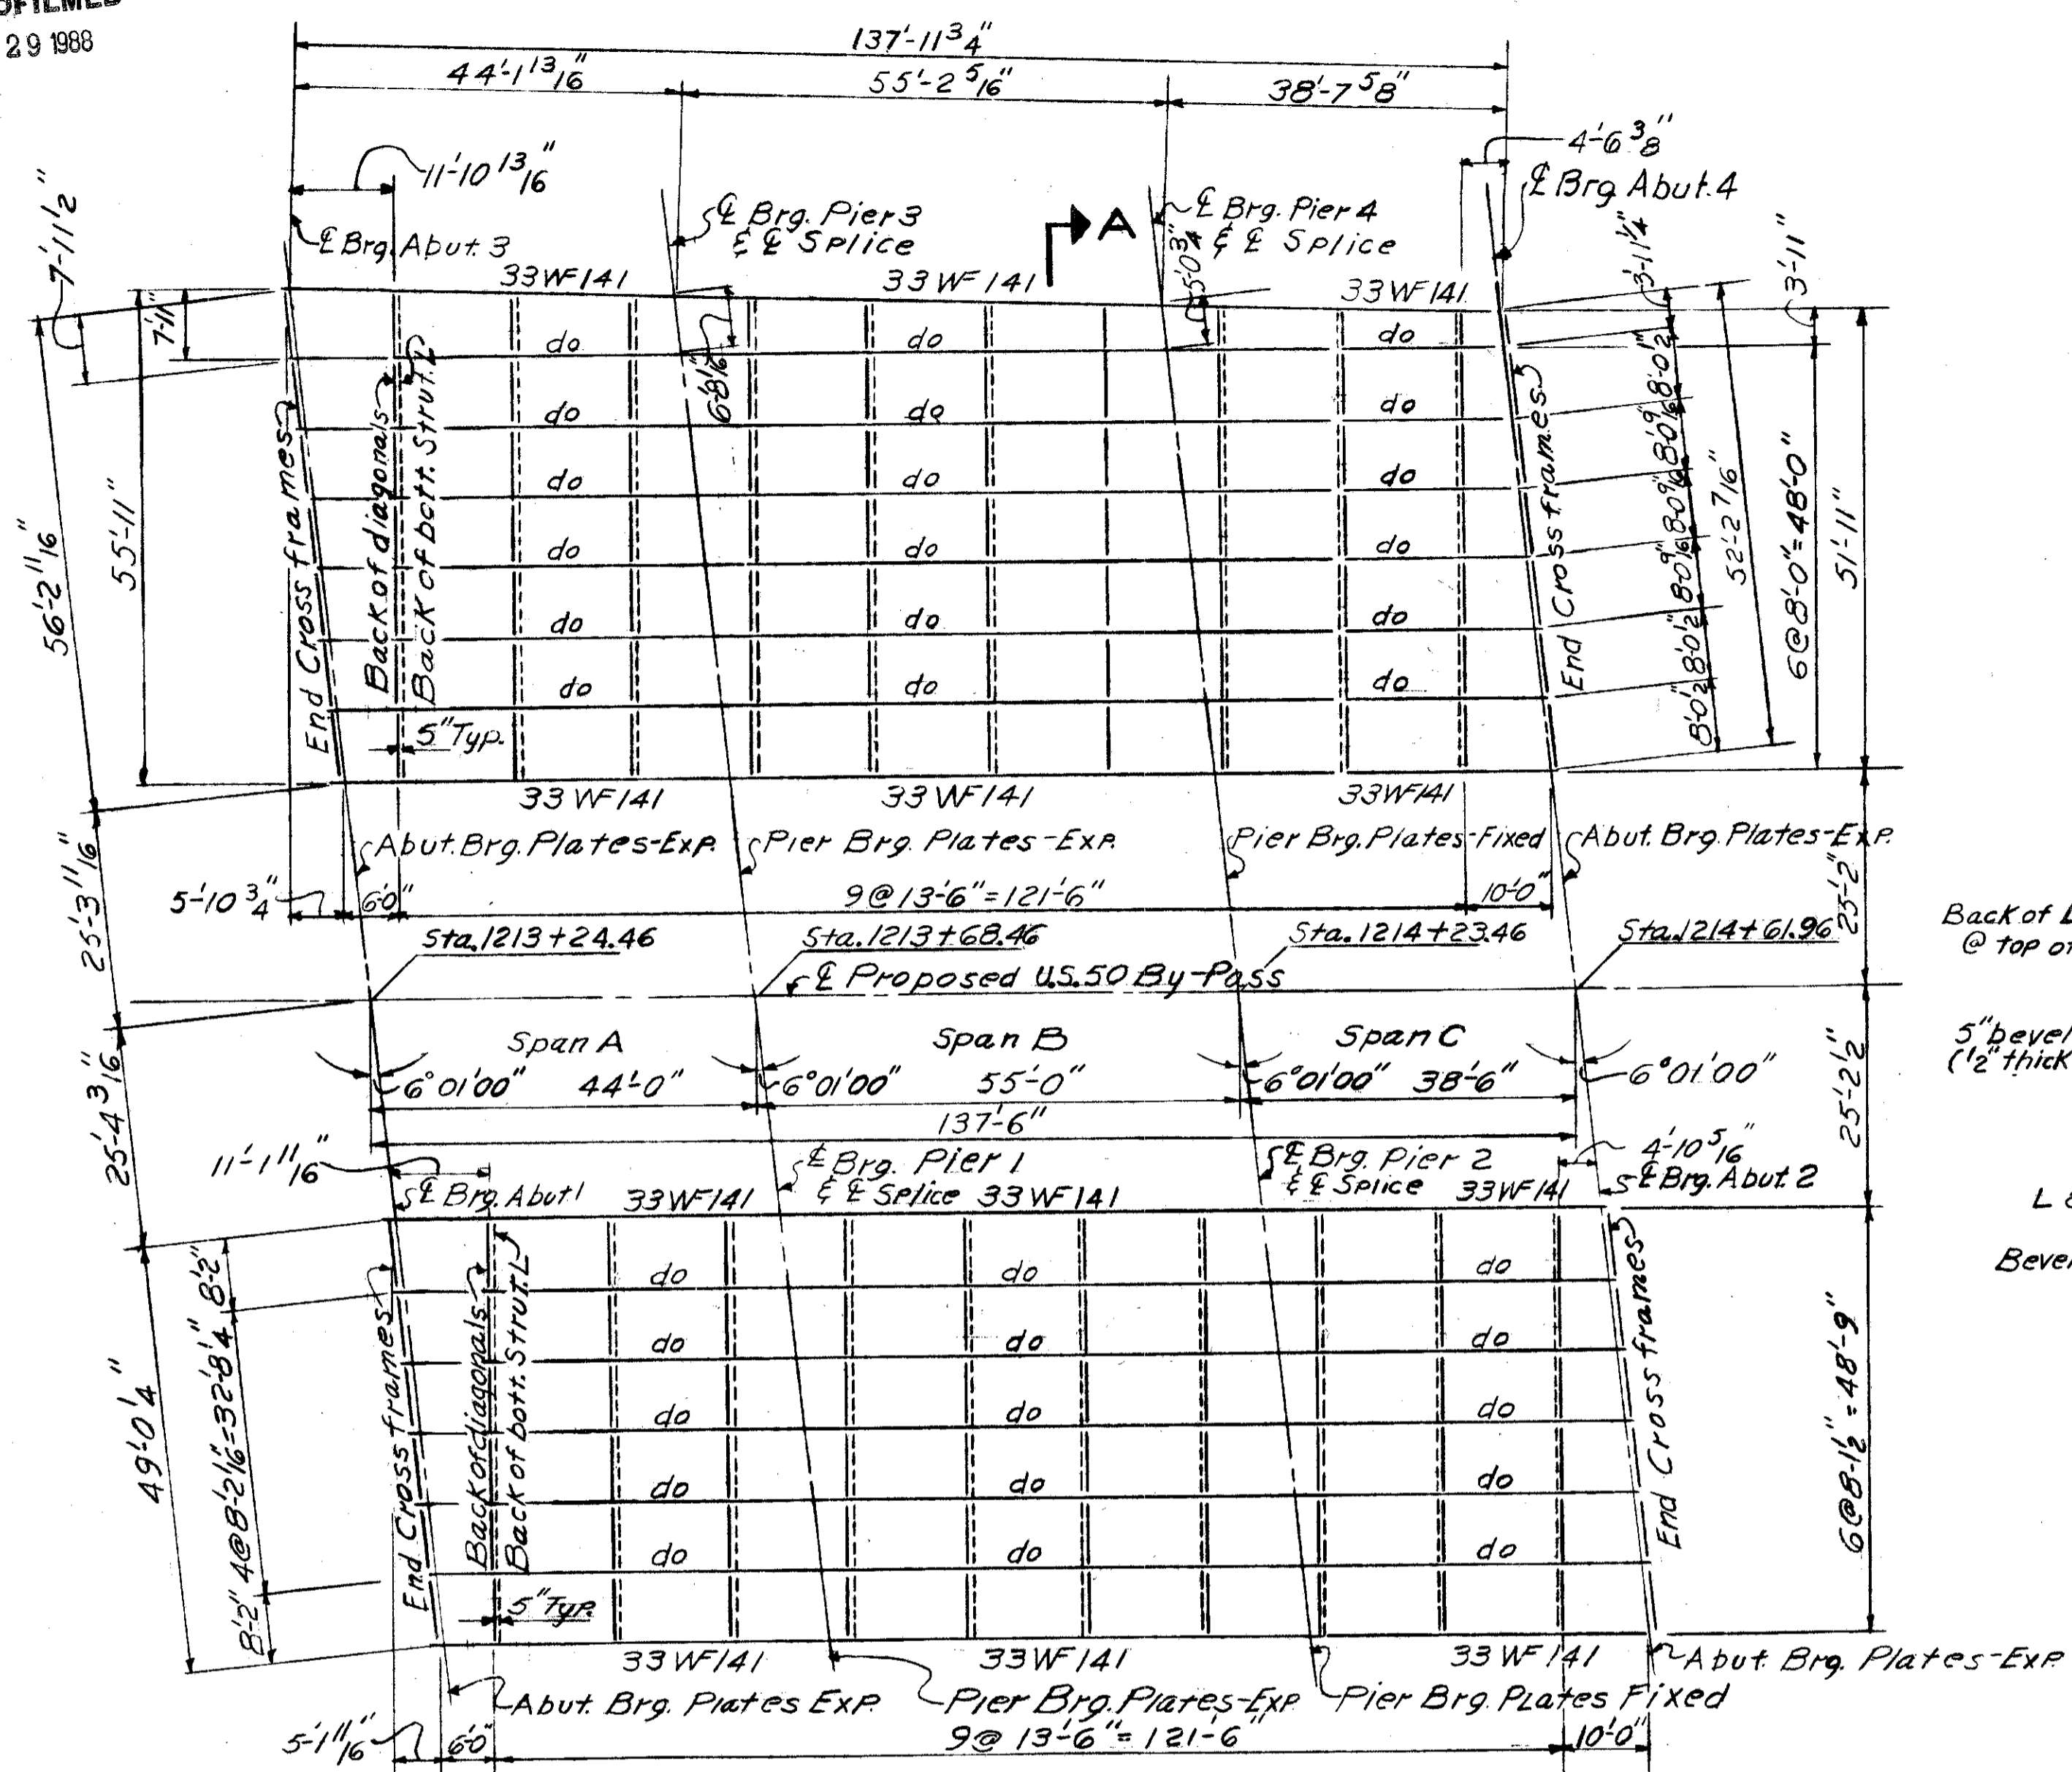 29 1988
137'-11 3/4"
44'-1 13/16"
55'-2 5/16"
38'-7 5/8"
11'-10 13/16"
4'-6 3/8"
℄ Brg. Abut. 3
℄ Brg. Pier 3
& ℄ Splice
A
℄ Brg. Pier 4
& ℄ Splice
℄ Brg Abut. 4
7'-11 1/2"
7'-11"
33WF141
33WF141
33WF141
6'-8 1/16"
5'-0 3/4"
3'-1 1/4"
3'-11"
do do do
do do do
do do do
do do do
do do do
do do do
End Cross frames
Back of diagonals
Back of bott. Strut. L
End Cross frames
5" Typ.
56'-2 11/16"
55'-11"
8'-0 1/2"
8'-0 9/16"
8'-0 9/16"
8'-0 9/16"
8'-0 1/2"
8'-0 1/2"
52'-2 7/16"
6@8'-0"=48'-0"
51'-11"
33WF141
33WF141
33WF141
Abut. Brg. Plates-Exp.
Pier Brg. Plates-Exp.
Pier Brg. Plates-Fixed
Abut. Brg. Plates-Exp.
5'-10 3/4"
6'-0"
9@13'-6"=121'-6"
10'-0"
25'-3 11/16"
25'-2"
Sta. 1213+24.46
Sta. 1213+68.46
Sta. 1214+23.46
Sta. 1214+61.96
℄ Proposed U.S. 50 By-Pass
Back of
@ top of
5" bevel
(1/2" thick
Span A
Span B
Span C
6°01'00" 44'-0"
6°01'00" 55'-0"
6°01'00" 38'-6"
6°01'00"
137'-6"
25'-4 3/16"
25'-2 1/2"
11'-1 11/16"
4'-10 5/16"
℄ Brg. Abut 1
33WF141
℄ Brg. Pier 1
& ℄ Splice
33WF141
℄ Brg. Pier 2
& ℄ Splice
33WF141
℄ Brg. Abut. 2
L
do do do
do do do
do do do
do do do
do do do
End Cross frames
Back of diagonals
Back of bott. Strut. L
End Cross frames
5" Typ.
49'-0 1/4"
8'-2"
4@8'-2 1/16"=32'-8 1/4"
8'-2"
6@8'-1 1/2"=48'-9"
33WF141
33WF141
33WF141
Abut. Brg. Plates Exp.
Pier Brg. Plates-Exp
Pier Brg. Plates Fixed
Abut. Brg. Plates-Exp
5'-1 11/16"
6'-0"
9@13'-6"=121'-6"
10'-0"